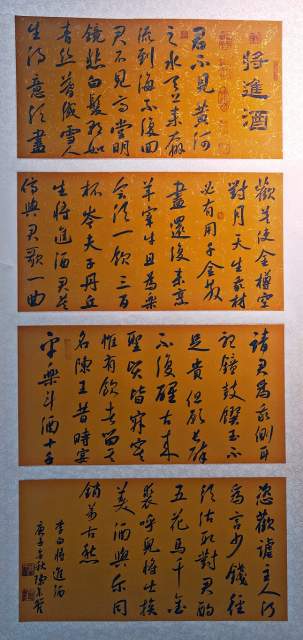 將進酒
君不見黃河
之水天上來奔
流到海不復回
君不見高堂明
鏡悲白髮朝如
青絲暮成雪人
生得意須盡
歡莫使金樽空
對月天生我材
必有用千金散
盡還復來烹
羊宰牛且為樂
會須一飲三百
杯岑夫子丹丘
生將進酒君莫
停與君歌一曲
請君為我側耳
聽鐘鼓饌玉不
足貴但願長醉
不復醒古來
聖賢皆寂寞
惟有飲者留其
名陳王昔時宴
平樂斗酒十千
恣歡謔主人何
為言少錢徑
須沽取對君酌
五花馬千金
裘呼兒將出換
美酒與尔同
銷萬古愁
李白將進酒
庚子秋